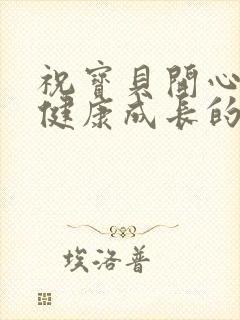 祝寶貝開心
健康成長的
埃洛普